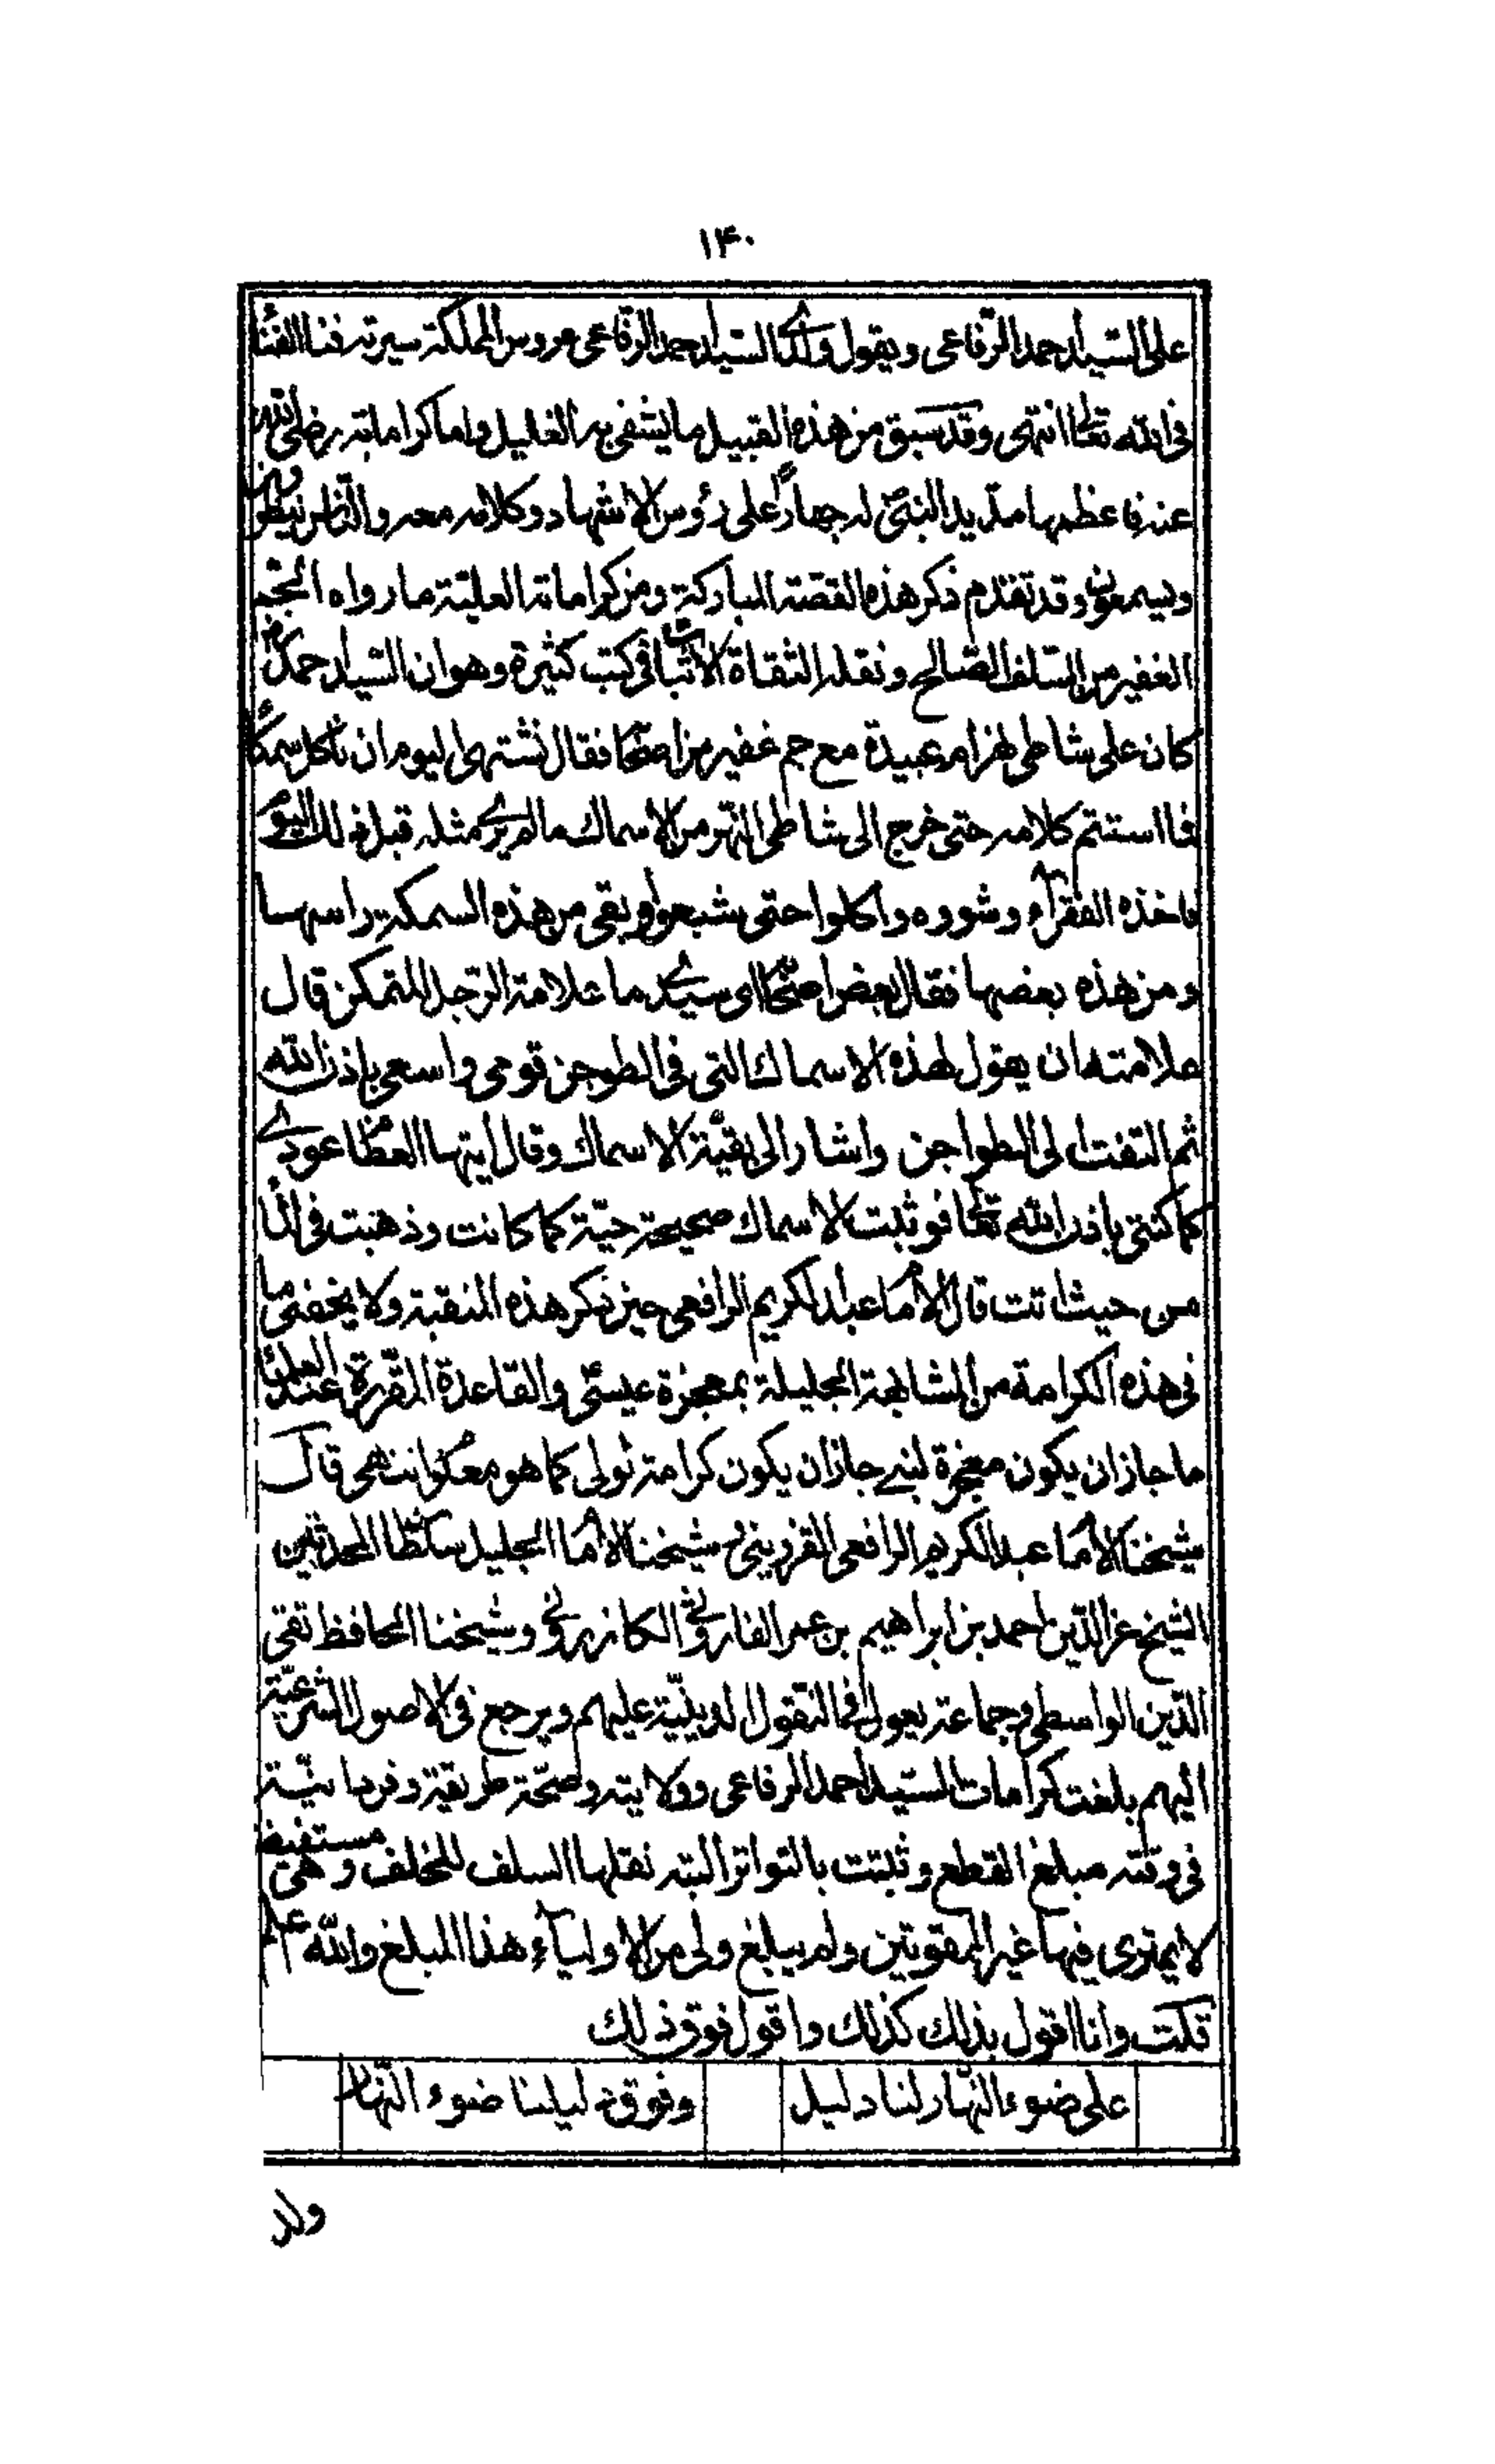 ١٤٠
على السيد احمد الرفاعى ويقول ولدى السيد احمد الرفاعى عروس المملكة سيرته فنا الفنا
فى الله تعالى انتهى وقد سبق من هذه القبيل ما يشفى به الغليل واما كراماته رضى الله
عنه فاعظمها مد يد النبى له جهاراً على رؤس الاشهاد وكلامه معه والناس ينظرون
ويسمعون وقد تقدم ذكر هذه القصة المباركة ومن كراماته العلية ما رواه الجم
الغفير من السلف الصالح ونقله الثقاة الاثبات فى كتب كثيرة وهو ان السيد احمد رض
كان على شاطى نهر ام عبيدة مع جم غفير من اصحابه فقال نشتهى اليوم ان ناكل سمكاً
فما استتم كلامه حتى خرج الى شاطى النهر من الاسماك ما لم ير مثله قبل ذلك اليوم
فاخذه الفقرآء وشووه واكلوا حتى شبعوا وبقى من هذه السمكة راسها
ومن هذه بعضها فقال بعض اصحابه اى سيدى ما علامة الرجل المتمكن قال
علامته ان يقول لهذه الاسماك التى فى الطوجن قومى واسعى باذن الله
ثم التفت الى الطواجن واشار الى بقية الاسماك وقال ايتها العظام عودى
كما كنتى باذن الله تعالى فوثبت الاسماك صحيحة حية كما كانت وذهبت فى الماء
من حيث اتت قال الامام عبد الكريم الرافعى حين ذكر هذه المنقبة ولا يخفى ما
فى هذه الكرامة من المشابهة الجليلة بمعجزة عيسى والقاعدة المقررة عند العلماء
ما جاز ان يكون معجزة لنبى جاز ان يكون كرامة لولى كما هو معلوم انتهى قال
شيخنا الامام عبد الكريم الرافعى القزوينى وشيخنا الامام الجليل سلطان المحدثين
الشيخ عز الدين احمد بن ابراهيم بن عمر الفاروثى الكازرونى وشيخنا الحافظ تقى
الدين الواسطى وجماعة يعول فى النقول الدينية عليهم ويرجع فى الاصول الشرعية
اليهم بلغت كرامات السيد احمد الرفاعى وولايته وصحة طريقة وفردانية
فى وقته مبلغ القطع وثبتت بالتواتر البته نقلها السلف للخلف وهى مستفيضة
لا يمترى فيها غير الممقوتين ولم يبلغ ولى من الاوليآء هذا المبلغ والله اعلم
قلت وانا اقول بذلك كذلك واقول فوق ذلك
على ضوء النهار لنا دليل وفوق دليلنا ضوء النهار
ولد